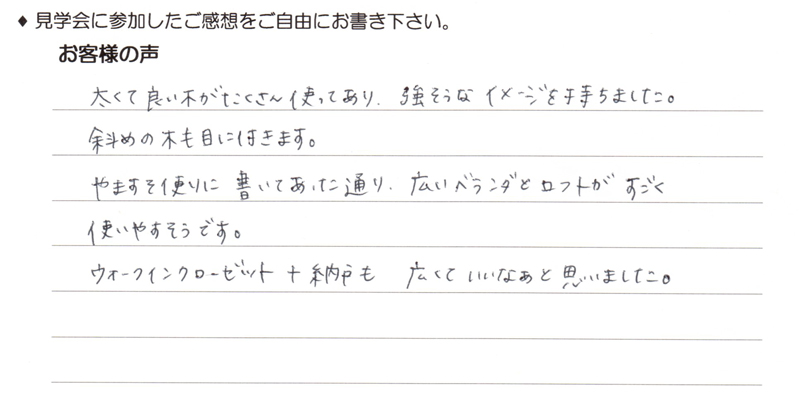 ♦ 見学会に参加したご感想をご自由にお書き下さい。
お客様の声
太くて良い木がたくさん使ってあり、強そうなイメージを持ちました。
斜めの木も目に付きます。
やますそ便りに書いてあった通り、広いベランダとロフトがすごく
使いやすそうです。
ウォークインクローゼット+納戸も 広くていいなぁと思いました。